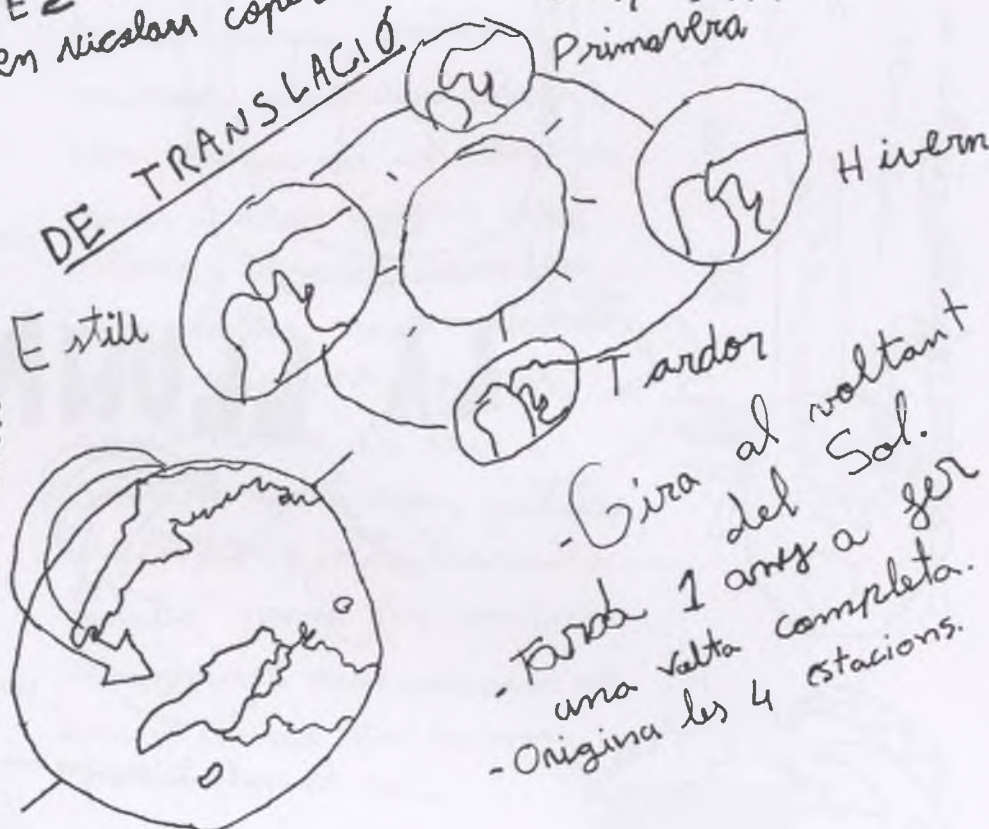 en Nicolau
DE TRANSLACIÓ
Primavera
Hivern
Estiu
Tardor
- Gira al voltant
del Sol.
- Tarda 1 any a fer
una volta completa.
- Origina les 4 estacions.